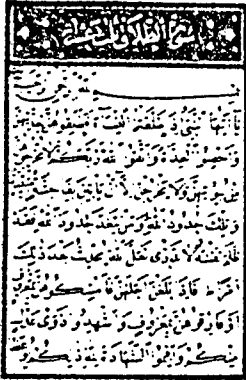 بسم الله الرحمن الرحيم
يا أيها النبي إذا طلقتم النساء فطلقوهن
وأحصوا العدة واتقوا الله ربكم لا تخرجوهن
من بيوتهن ولا يخرجن إلا أن يأتين بفاحشة
وتلك حدود الله ومن يتعد حدود الله فقد
ظلم نفسه لا تدري لعل الله يحدث بعد ذلك
أمرا فإذا بلغن أجلهن فأمسكوهن بمعروف
أو فارقوهن بمعروف وأشهدوا ذوي عدل
منكم وأقيموا الشهادة لله ذلكم